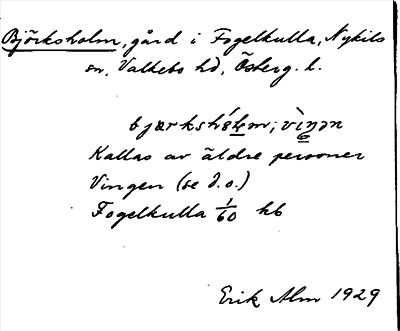 Björksholm, gård i Fogelkulla, Nykils
sn, Valkebo hd, Österg. l.
bjærkshól̲m; vìŋən
Kallas av äldre personer
Vingen (se d. o.)
Fogelkulla 1/60 hb
Erik Alm 1929